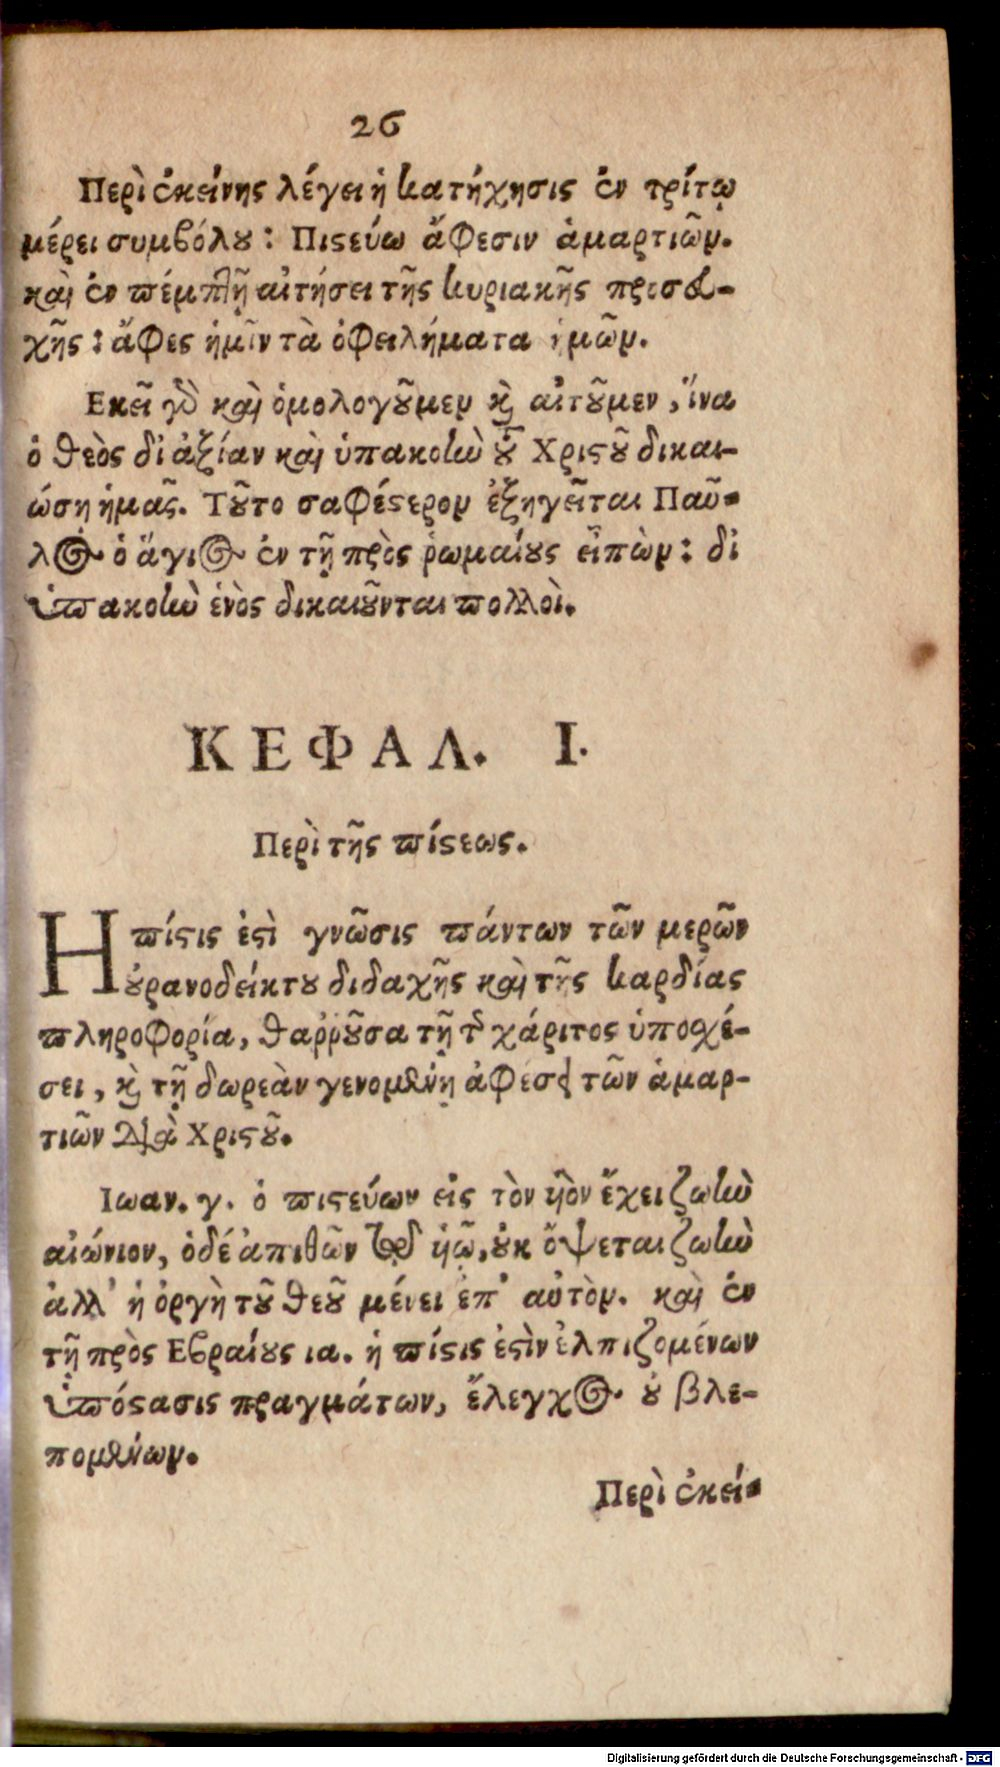 26
Περὶ ἐκείνης λέγει ἡ κατήχησις ἐν τρίτῳ
μέρει συμβόλȣ: Πιϛεύω ἄφεσιν ἁμαρτιῶν.
καὶ ἐν πέμπτῃ αἰτήσει τῆς κυριακῆς προσευ-
χῆς: ἄφες ἡμῖν τὰ ὀφειλήματα ἡμῶν.
Εκεῖ γὸ καὶ ὁμολογȣ͂μεν κ̀ αἰτȣ͂μεν, ἵνα
ὁ θεὸς δι ἀξίαν καὶ ὑπακοὴν τȣ͂ Χριϛȣ͂ δικαι-
ώσῃ ἡμᾶς. Τȣ͂το σαφέϛερον ἐξηγεῖται Παῦ-
λος ὁ ἅγιος ἐν τῇ πρὸς ῥωμαίȣς εἰπὼν: δι
ὑπακοὴν ἑνὸς δικαιȣ͂νται πολλοὶ.
ΚΕΦΑΛ. Ι.
Περὶ τῆς πίϛεως.
Η πίϛις ἐϛὶ γνῶσις πάντων τῶν μερῶν
ȣρανοδείκτȣ διδαχῆς καὶ τῆς καρδίας
πληροφορία, θαῤῥȣ͂σα τῇ τ͂ χάριτος ὑποσχέ-
σει, κ̀ τῇ δωρεὰν γενομένῃ ἀφέσει τῶν ἁμαρ-
τιῶν διὰ Χριϛȣ͂.
Ιωαν. γ. ὁ πιϛεύων εἰς τὸν υἱὸν ἔχει ζωὴν
αἰώνιον, ὁ δέ ἀπιθῶν τῷ υἱῷ, ȣκ ὄψεται ζωὴν
ἀλλ' ἡ ὀργὴ τȣ͂ θεȣ͂ μένει ἐπ' αὐτὸν. καὶ ἐν
τῇ πρὸς Εβραίȣς ια. ἡ πίϛις ἐϛὶν ἐλπιζομένων
ὑπόϛασις πραγμάτων, ἔλεγχος ȣ βλε-
πομένων.
Περὶ ἐκεί-
Digitalisierung gefördert durch die Deutsche Forschungsgemeinschaft - DFG